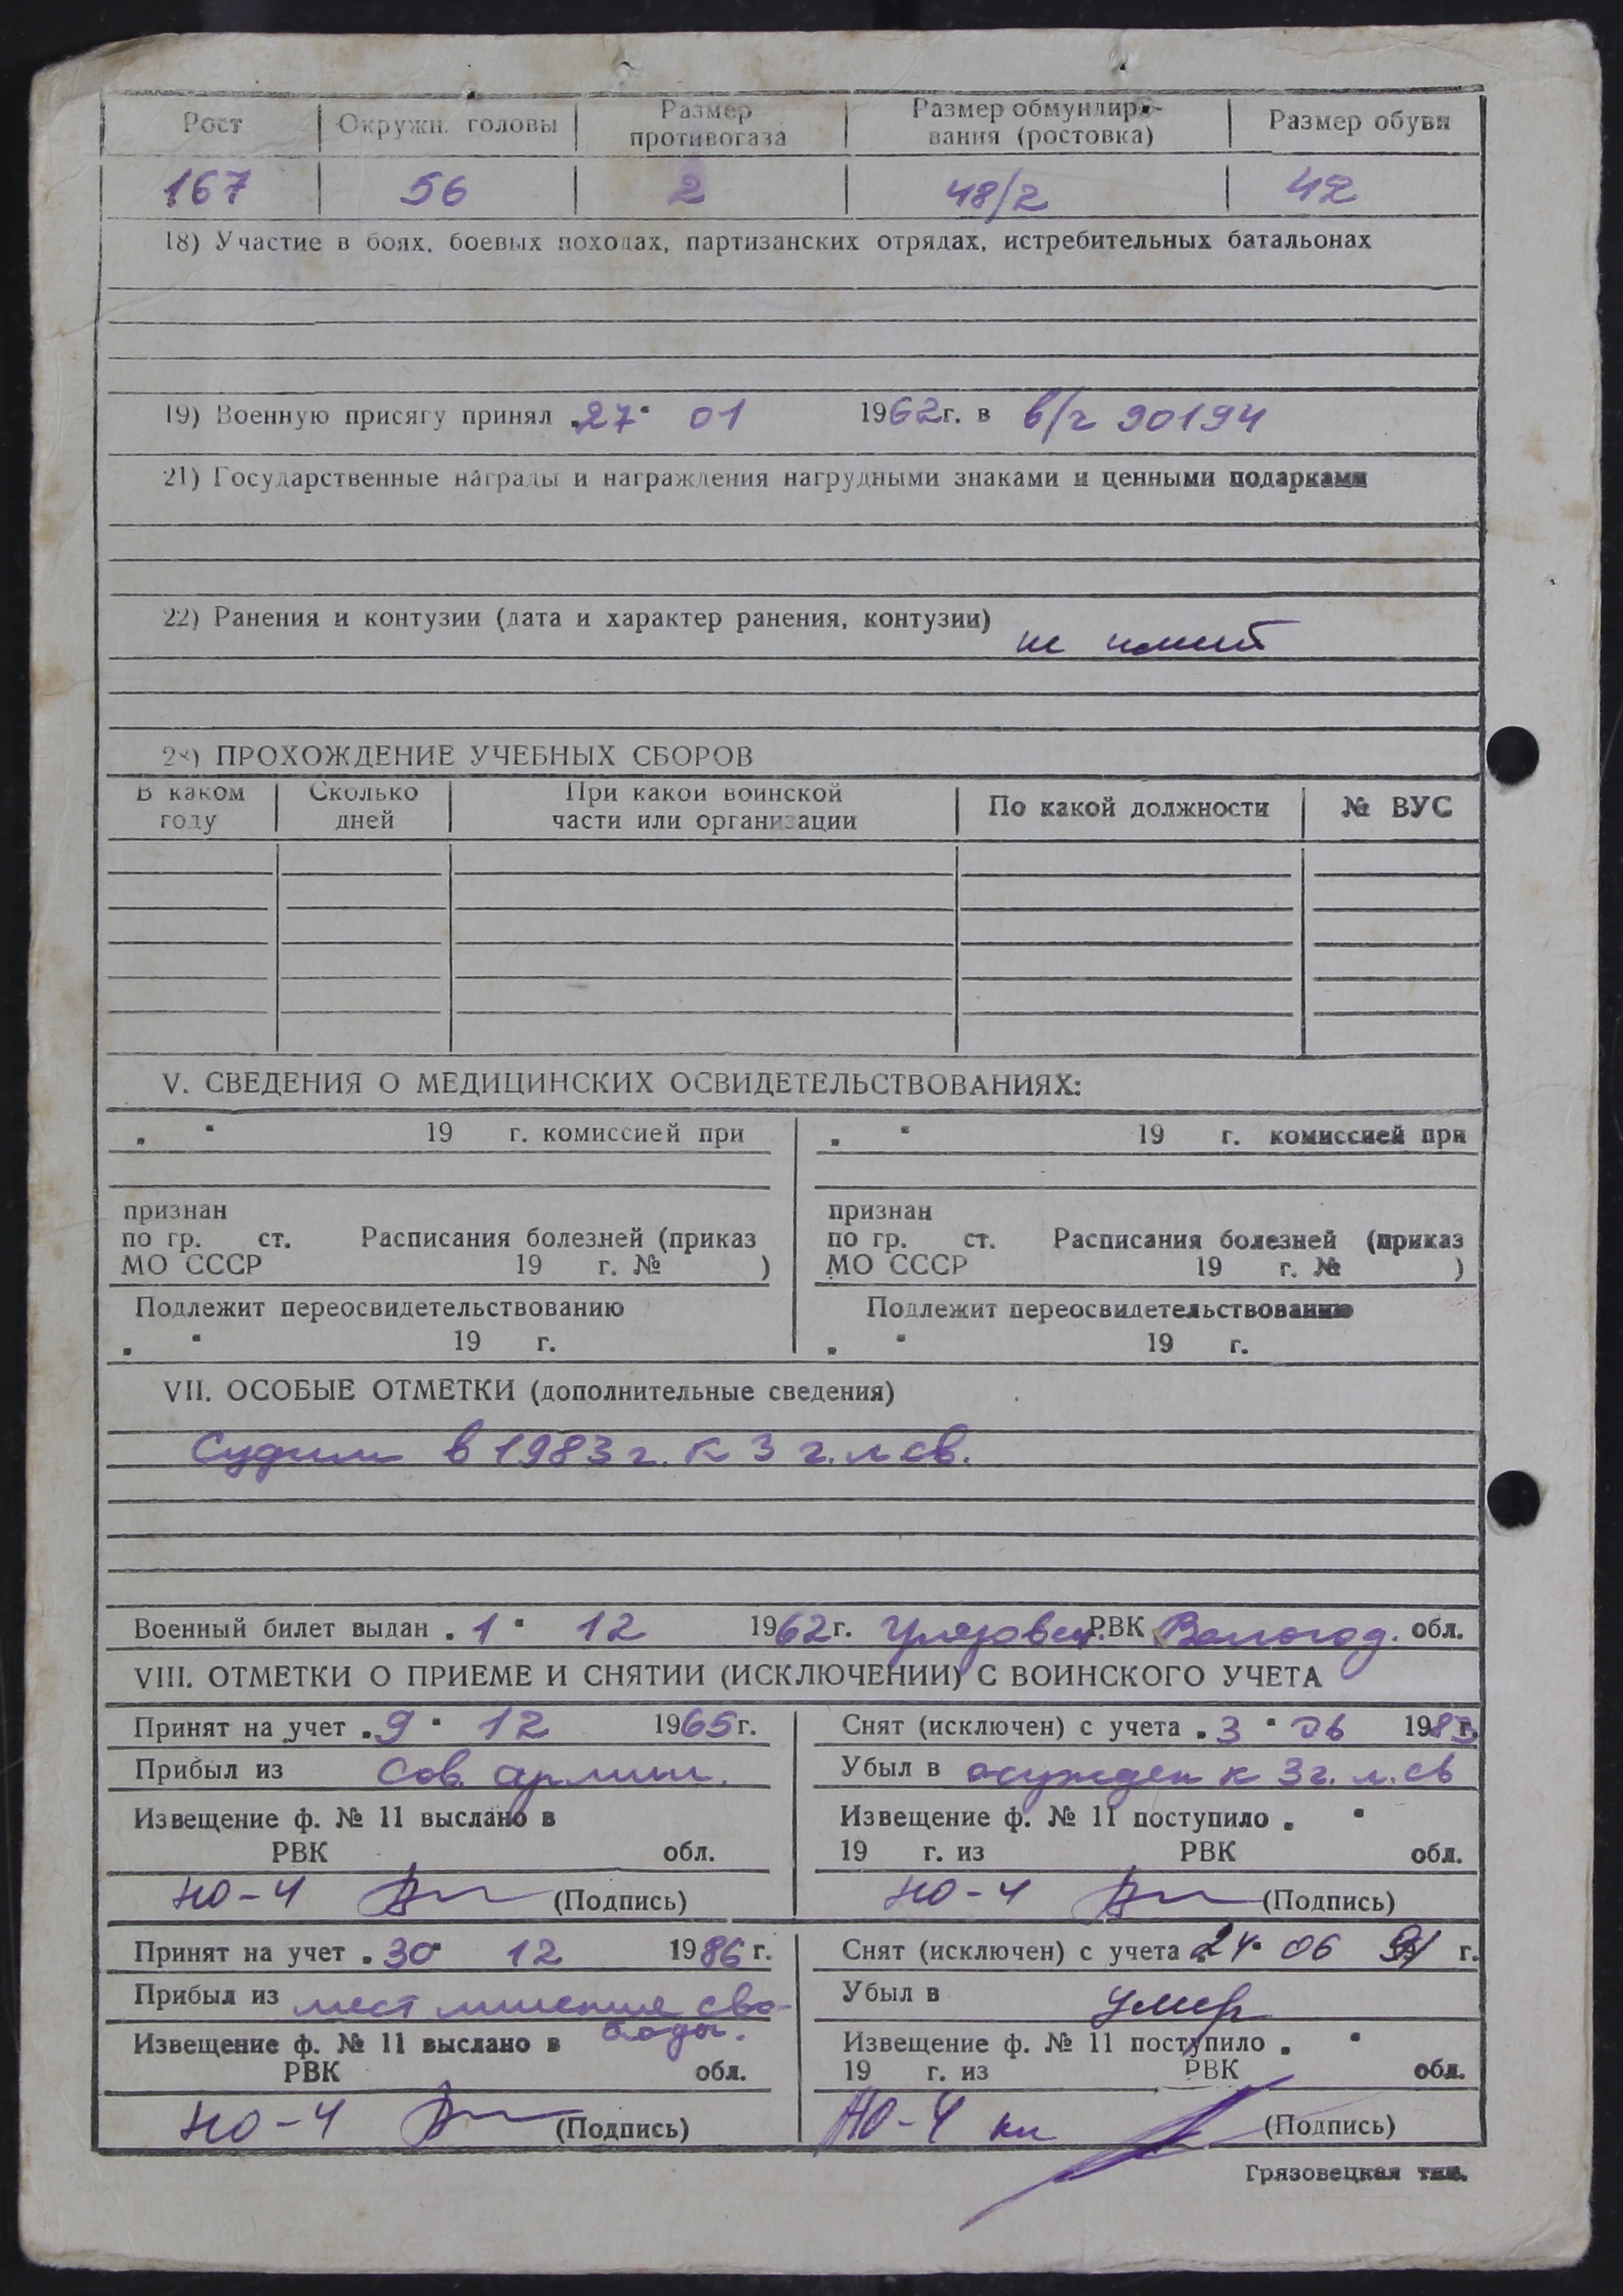 Рост Окружн. головы Размер противогаза Размер обмундиро-вания (ростовка) Размер обуви
167 56 2 48/2 42
18) Участие в боях, боевых походах, партизанских отрядах, истребительных батальонах
19) Военную присягу принял „27“ 01 1962г. в в/ч 90194
21) Государственные награды и награждения нагрудными знаками и ценными подарками
22) Ранения и контузии (дата и характер ранения, контузии) не имеет
28) ПРОХОЖДЕНИЕ УЧЕБНЫХ СБОРОВ
В каком году Сколько дней При какой воинской части или организации По какой должности № ВУС
V. СВЕДЕНИЯ О МЕДИЦИНСКИХ ОСВИДЕТЕЛЬСТВОВАНИЯХ:
„ “ 19 г. комиссией при „ “ 19 г. комиссией при
признан признан
по гр. ст. Расписания болезней (приказ по гр. ст. Расписания болезней (приказ
МО СССР 19 г. № ) МО СССР 19 г. № )
Подлежит переосвидетельствованию Подлежит переосвидетельствованию
„ “ 19 г. „ “ 19 г.
VII. ОСОБЫЕ ОТМЕТКИ (дополнительные сведения)
Судим в 1983 г. к 3 г. л св.
Военный билет выдан „1“ 12 1962г. Грязовец. РВК Вологод. обл.
VIII. ОТМЕТКИ О ПРИЕМЕ И СНЯТИИ (ИСКЛЮЧЕНИИ) С ВОИНСКОГО УЧЕТА
Принят на учет „9“ 12 1965г. Снят (исключен) с учета „3“ 06 1983г.
Прибыл из Сов. армии. Убыл в осужден к 3 г. л. св
Извещение ф. № 11 выслано в Извещение ф. № 11 поступило „ “
РВК обл. 19 г. из РВК обл.
НО-4 (Подпись) НО-4 (Подпись)
Принят на учет „30“ 12 1986 г. Снят (исключен) с учета „24“ 06 91 г.
Прибыл из мест лишения сво- Убыл в умер
боды.
Извещение ф. № 11 выслано в Извещение ф. № 11 поступило „ “
РВК обл. 19 г. из РВК обл.
НО-4 (Подпись) НО-4 (Подпись)
Грязовецкая тип.